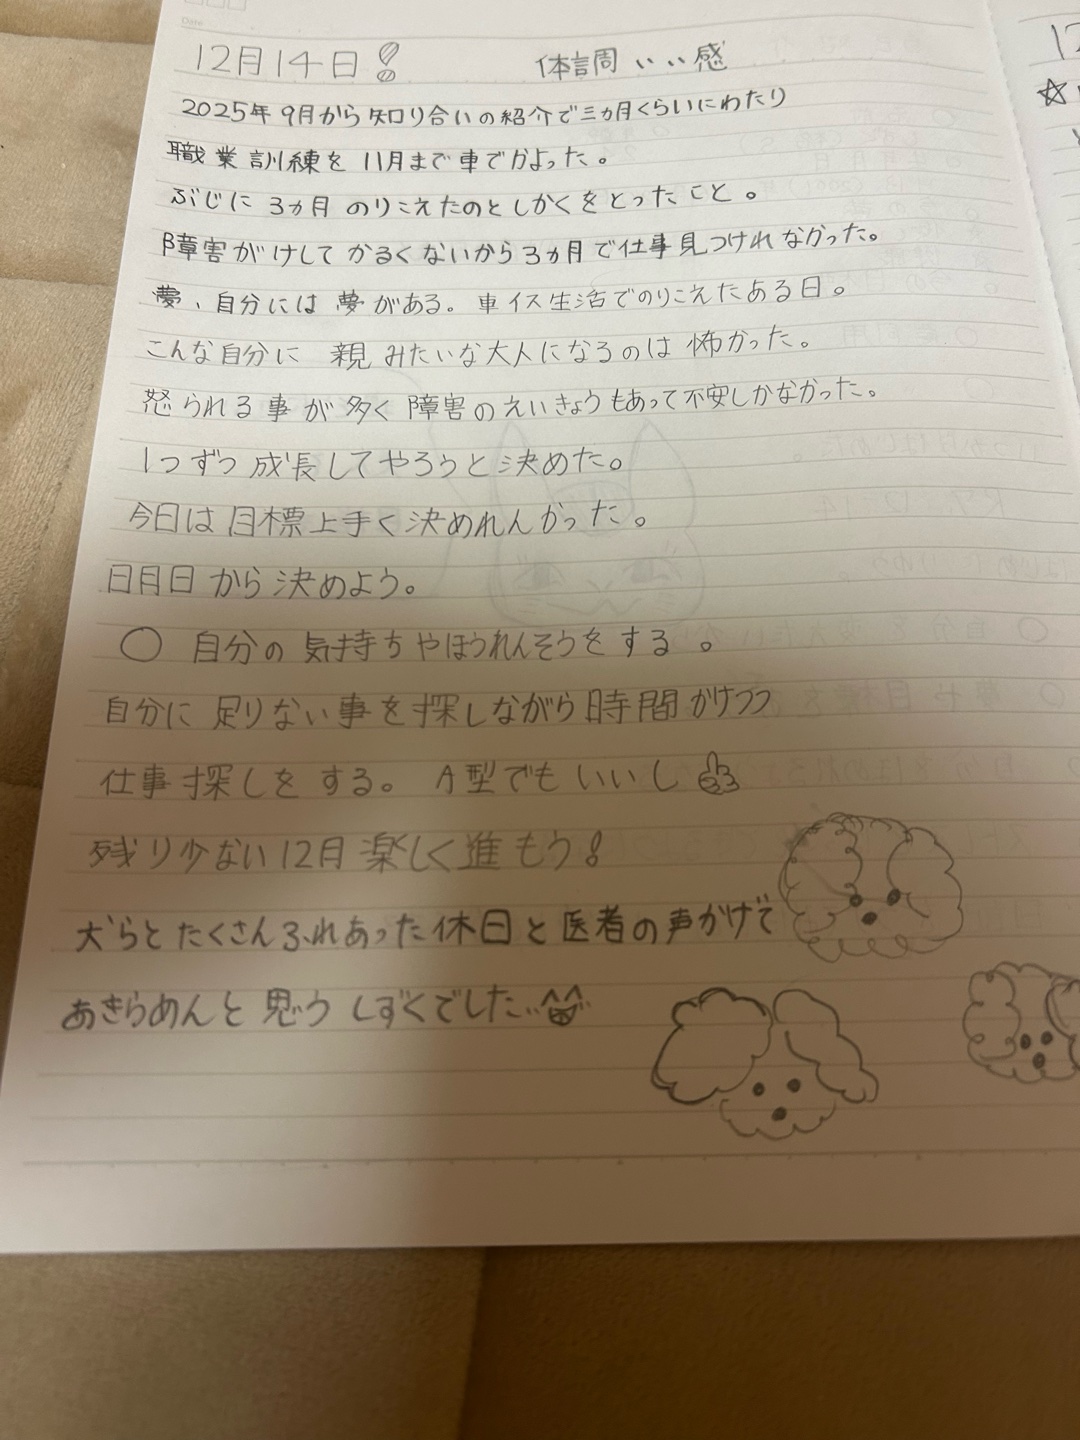 Date
12月14日！ 体調 いい感じ
2025年9月から知り合いの紹介で三ヵ月くらいにわたり
職業訓練を11月まで車でかよった。
ぶじに3ヵ月のりこえたのとしかくをとったこと。
障害がけしてかるくないから3ヵ月で仕事見つけれなかった。
夢、自分には夢がある。車イス生活でのりこえたある日。
こんな自分に親みたいな大人になるのは怖かった。
怒られる事が多く障害のえいきょうもあって不安しかなかった。
1つずつ成長してやろうと決めた。
今日は目標上手く決めれんかった。
日月日から決めよう。
○ 自分の気持ちやほうれんそうをする。
自分に足りない事を探しながら時間かけつつ
仕事探しをする。A型でもいいし
残り少ない12月楽しく進もう！
犬らとたくさんふれあった休日と医者の声かげで
あきらめんと思うしずくでした…
12
☆